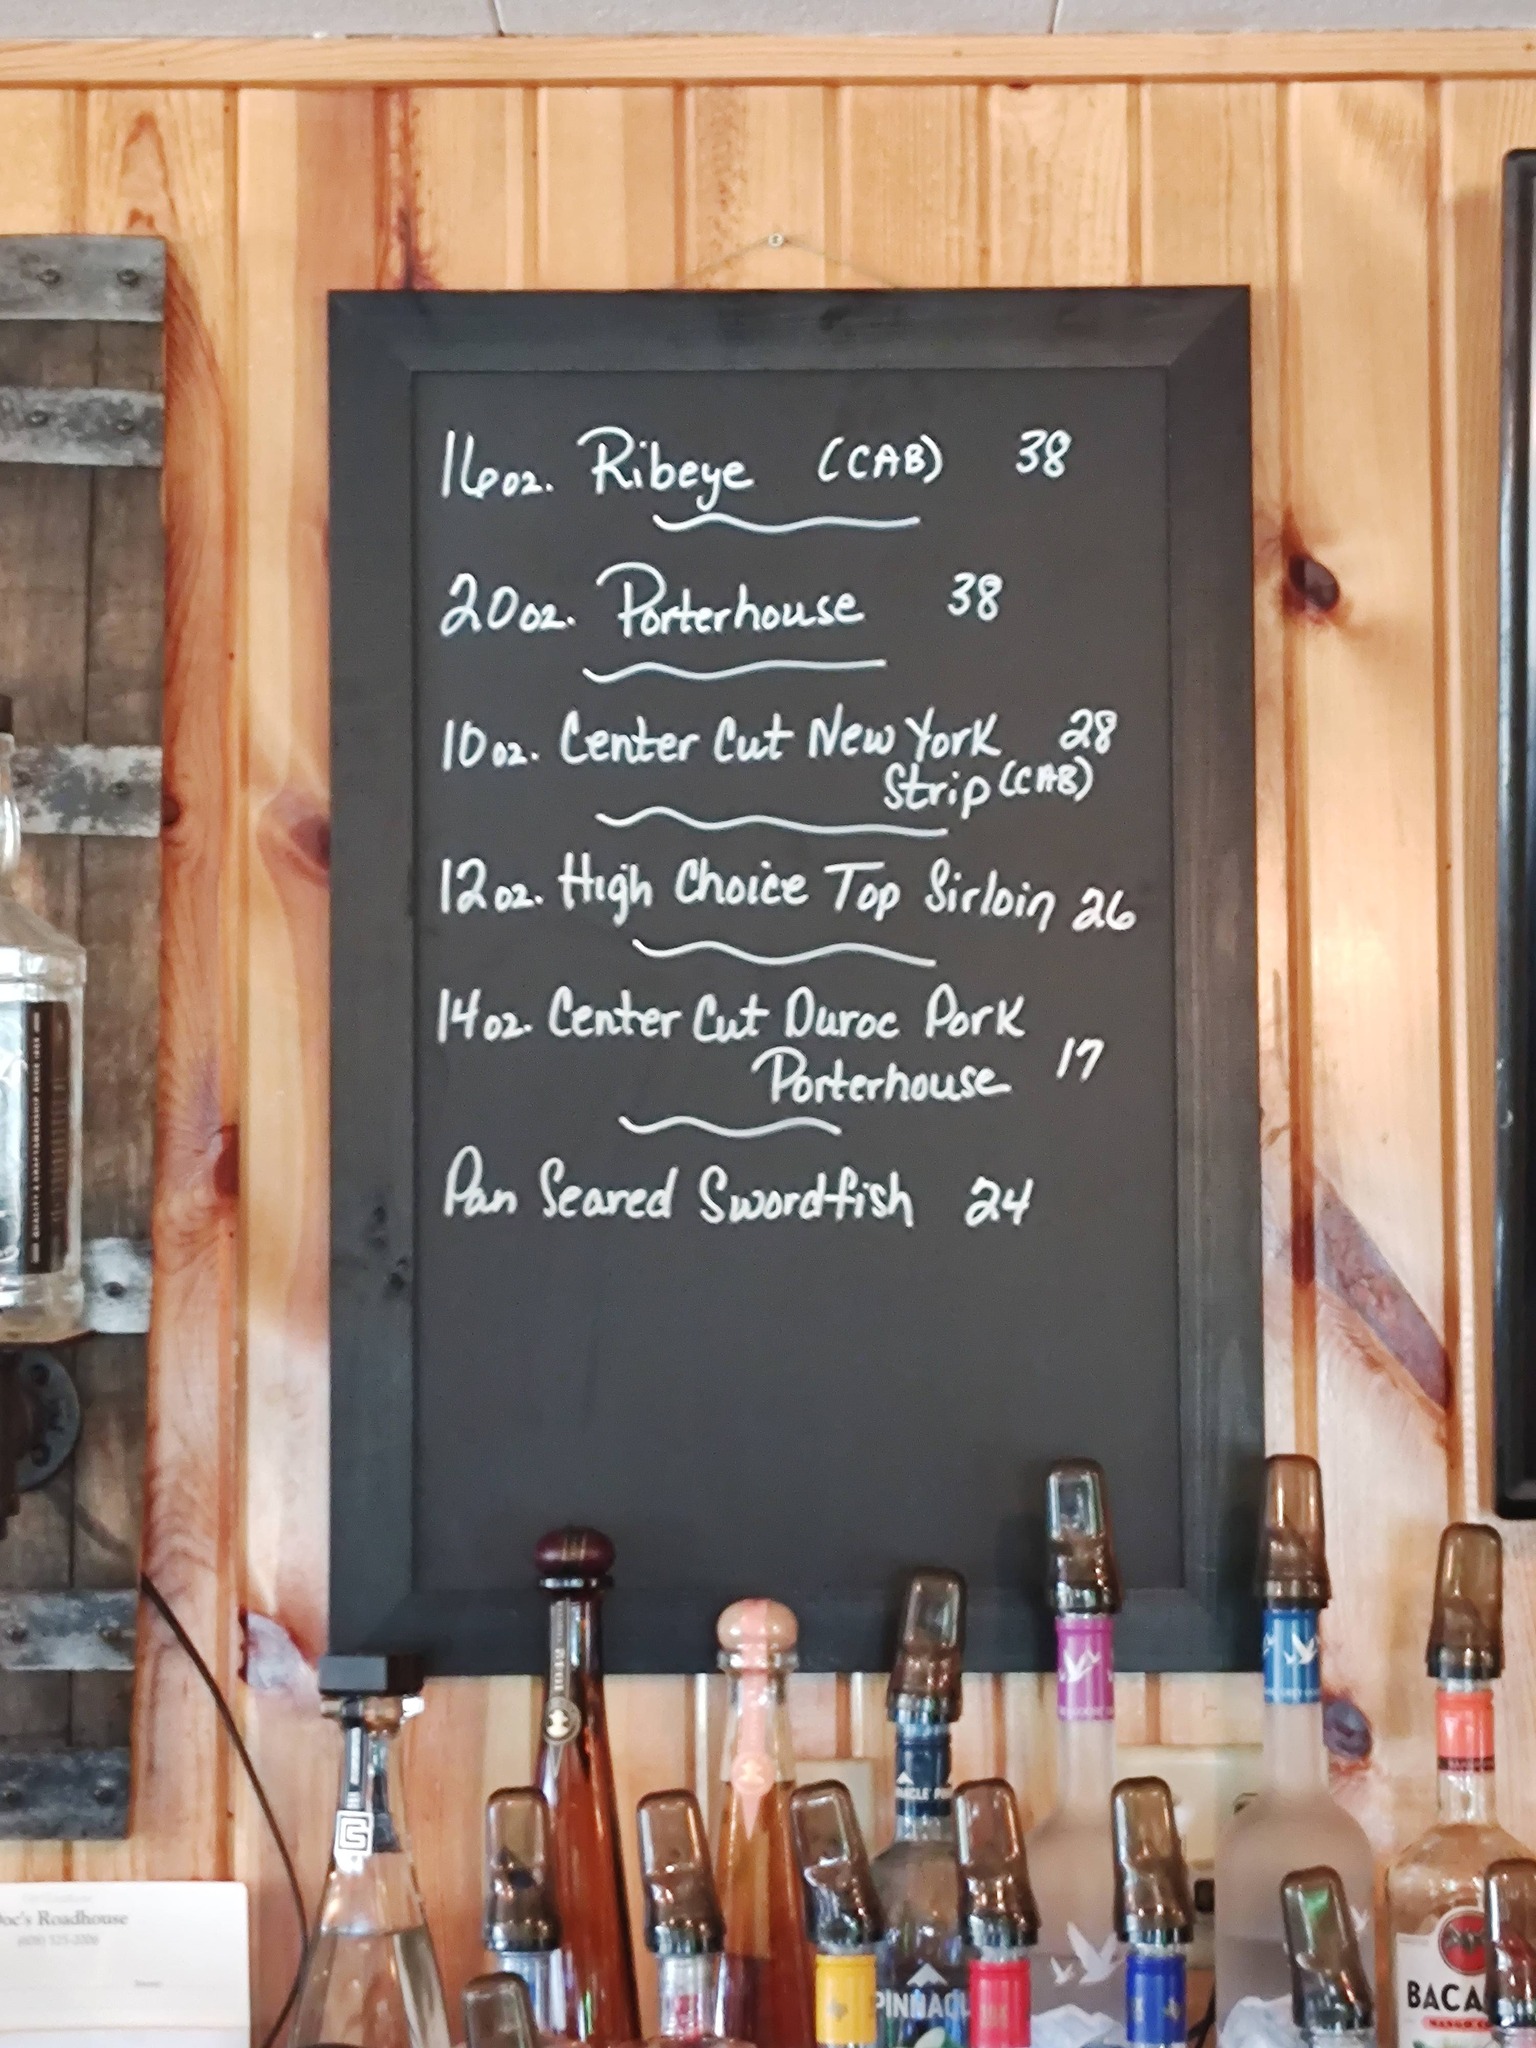 16oz. Ribeye (CAB) 38
20oz. Porterhouse 38
10oz. Center Cut New York 28
Strip (CAB)
12oz. High Choice Top Sirloin 26
14oz. Center Cut Duroc Pork
Porterhouse 17
Pan Seared Swordfish 24
QUALITY & CRAFTSMANSHIP SINCE 1866
oc's Roadhouse
PINNACL
BACA
MANGO